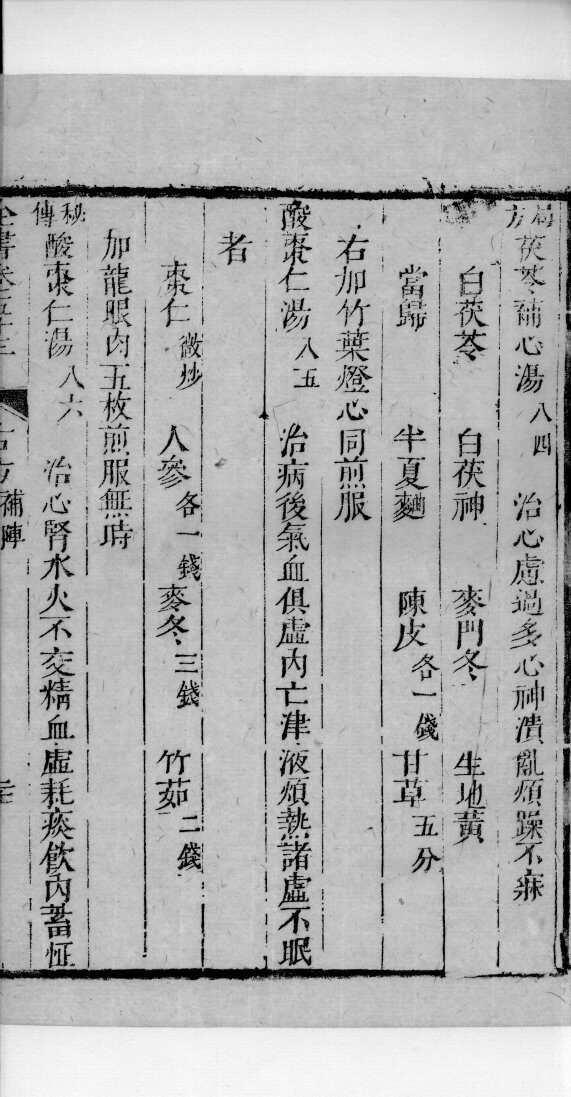 局方茯苓補心湯八四　治心慮過多心神潰亂煩躁不寐
白茯苓　白茯神　麥門冬　生地黃
當歸　半夏麯　陳皮各一錢　甘草五分
右加竹葉燈心同煎服
酸棗仁湯八五　治病後氣血俱虛內亡津液煩熱諸虛不眠
者
棗仁微炒　人參各一錢　麥冬三錢　竹茹二錢
加龍眼肉五枚煎服無時
秘傳酸棗仁湯八六　治心腎水火不交精血虛耗痰飲內蓄怔
全書卷五十三　古方補陣